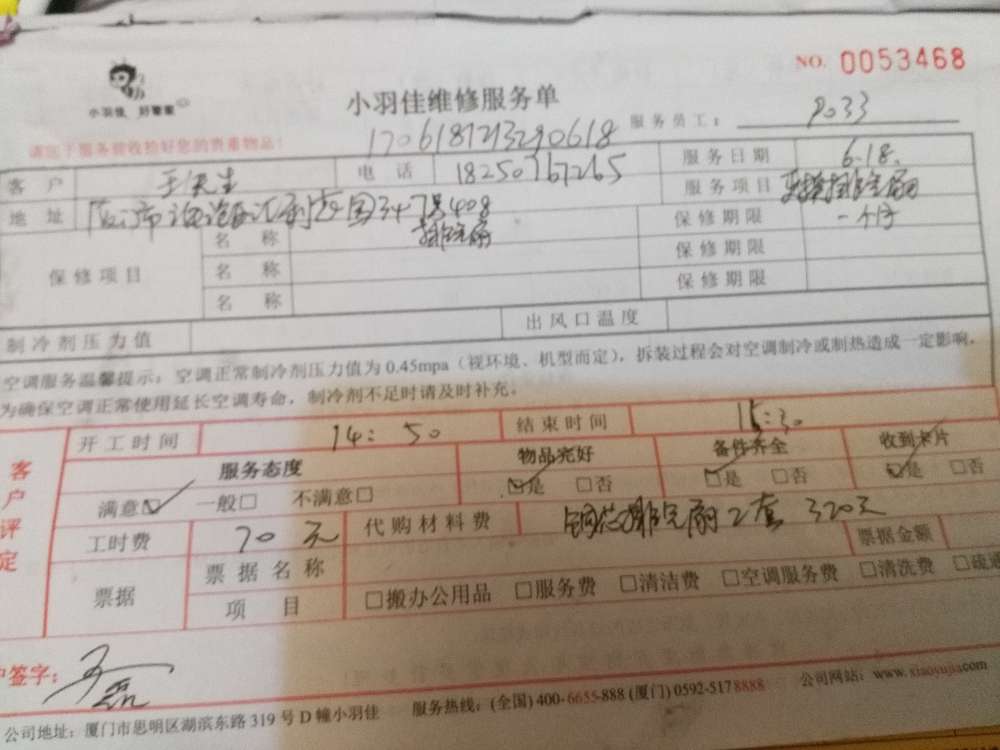 NO. 0053468
小羽佳 好管家
小羽佳维修服务单
170618123290618
服务员工： 9033
客户 王先生 电话 18250767265 服务日期 6.18.
地址 347号408 服务项目 更换排气扇
保修项目 名称 排气扇 保修期限 一个月
名称 保修期限
名称 保修期限
制冷剂压力值 出风口温度
空调服务温馨提示：空调正常制冷剂压力值为 0.45mpa（视环境、机型而定），拆装过程会对空调制冷或制热造成一定影响，
为确保空调正常使用延长空调寿命，制冷剂不足时请及时补充。
客户评定
开工时间 14：50 结束时间 15：30
服务态度 物品完好 备件齐全 收到卡片
满意☑ 一般□ 不满意□ ☑是 □否 ☑是 □否 ☑是 □否
工时费 70 元 代购材料费 铜芯排气扇2套 320元
票据 票据名称 票据金额
项目 □搬办公用品 □服务费 □清洁费 □空调服务费 □清洗费 □疏通
户签字：
公司地址：厦门市思明区湖滨东路 319 号 D 幢小羽佳 服务热线：(全国) 400-6655-888 (厦门) 0592-5178888 公司网站：www.xiaoyujia.com